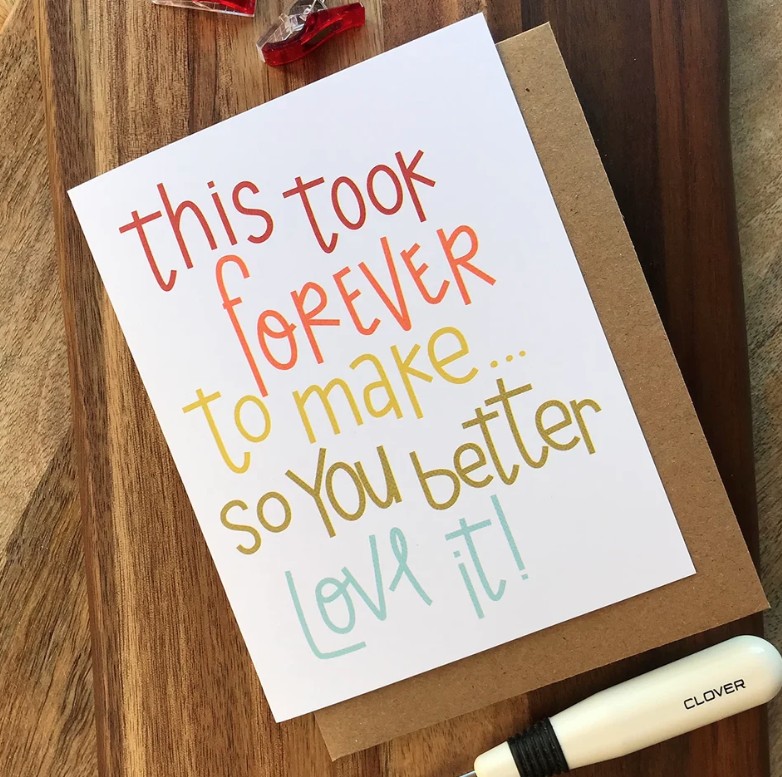 this took
foREVER
to make...
so You better
Love it!
CLOVER